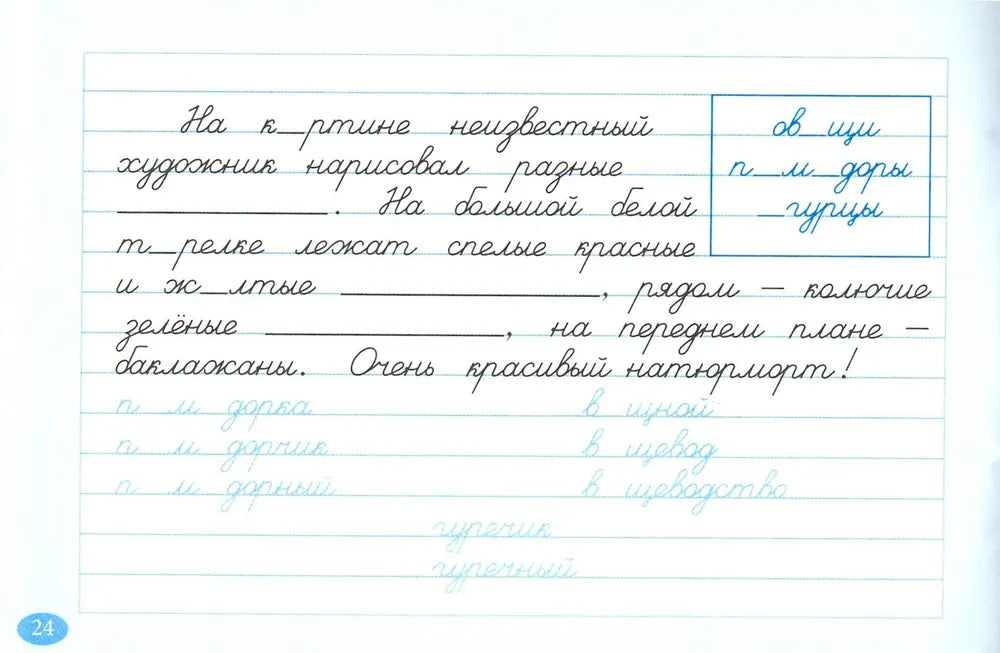 На к_ртине неизвестный
художник нарисовал разные
____________. На большой белой
т_релке лежат спелые красные
и ж_лтые ____________, рядом – колючие
зелёные ____________, на переднем плане –
баклажаны. Очень красивый натюрморт!
ов_щи
п_м_доры
_гурцы
п м дорка в щной
п м дорчик в щевод
п м дорный в щеводство
гуречик
гуречный
24